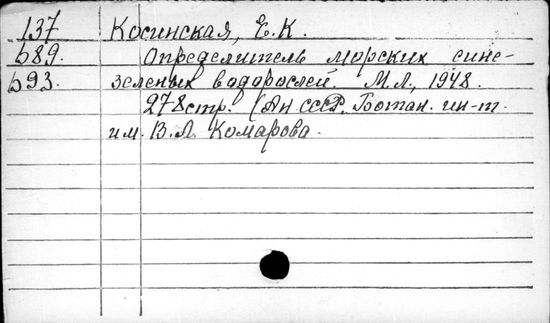 137 Косинская, Е.К.
689. Определитель морских сине-
693. зеленых водорослей. М.Л., 1948.
278стр. (Ан СССР. Ботан. ин-т.
им. В.Л. Комарова.